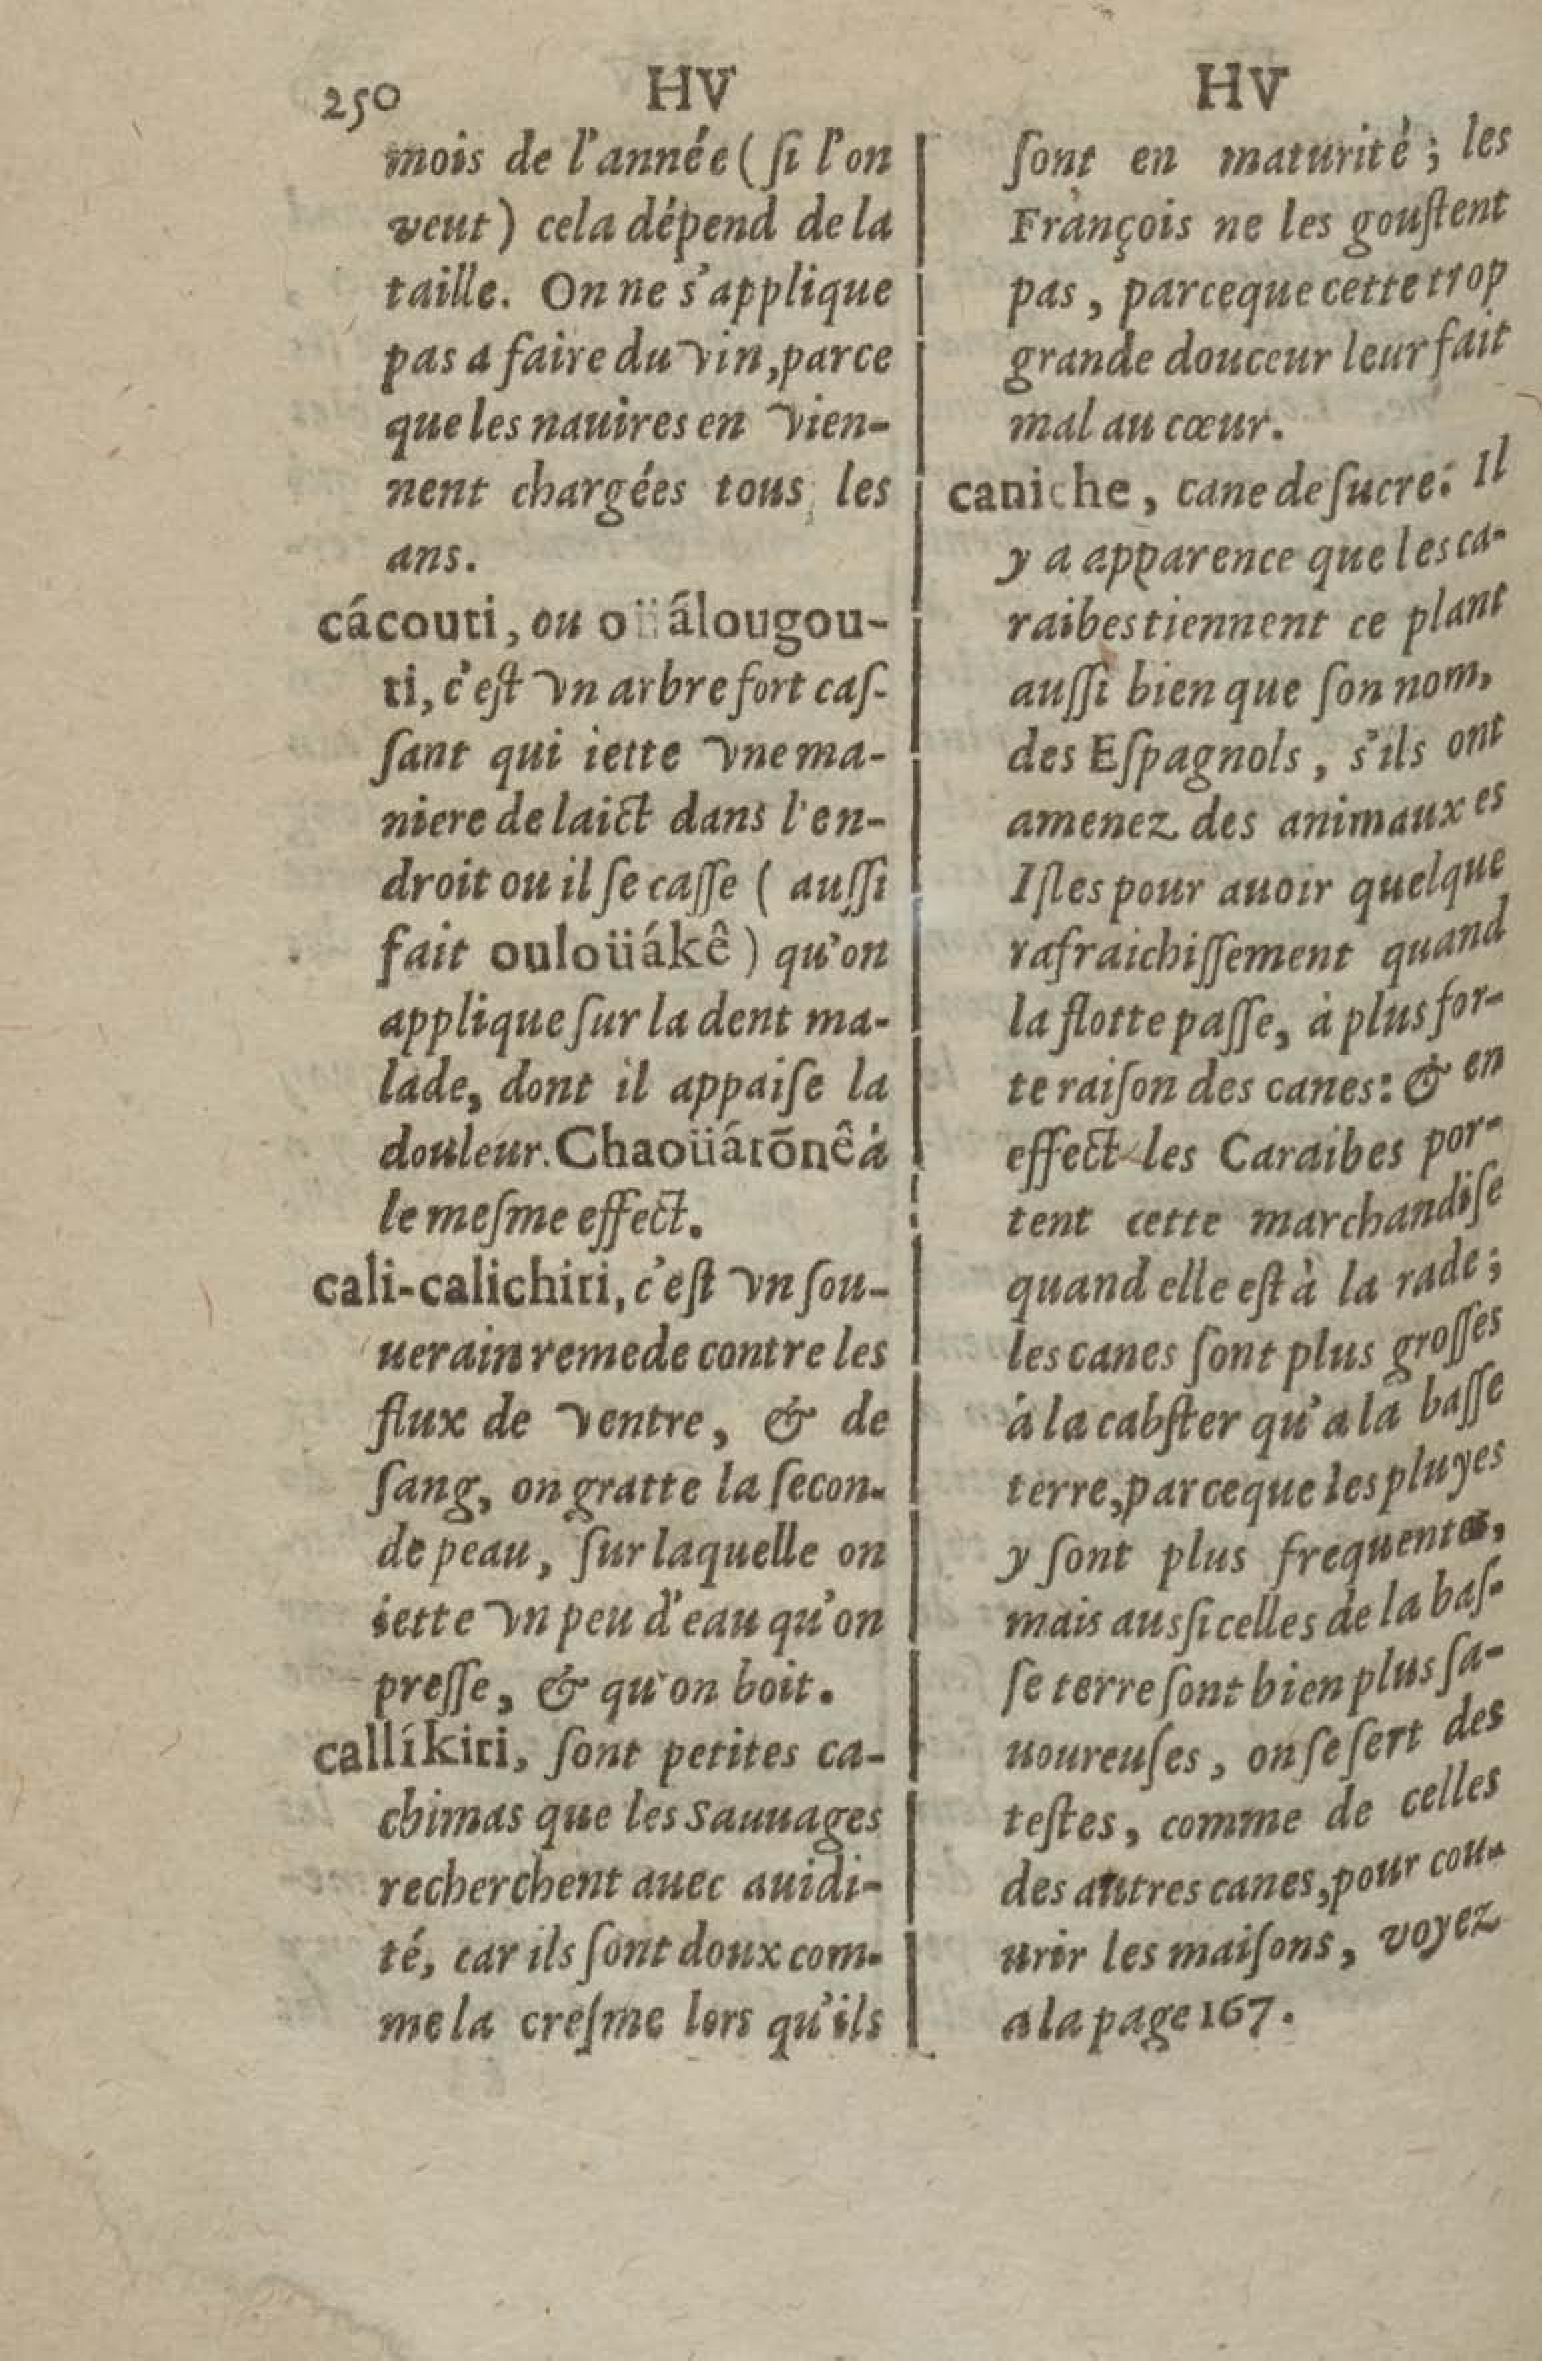 250 HV HV
mois de l'année (ſi l'on
veut) cela dépend de la
taille. On ne s'applique
pas a faire du vin, parce
que les nauires en vien-
nent chargées tous les
ans.
cácouti, ou oüálougou-
ti, c'eſt vn arbre fort caſ-
ſant qui iette vne ma-
niere de laict dans l'en-
droit ou il ſe caſſe ( auſſi
fait ouloüákê) qu'on
applique ſur la dent ma-
lade, dont il appaiſe la
douleur. Chaoüátõnê à
le meſme effect.
cali-calichiti, c'eſt vn ſou-
uerain remede contre les
flux de ventre, & de
ſang, on gratte la ſecon-
de peau, ſur laquelle on
iette vn peu d'eau qu'on
preſſe, & qu'on boit.
callíkiti, ſont petites ca-
chimas que les Sauuages
recherchent auec auidi-
té, car ils ſont doux com-
me la creſme lors qu'ils
ſont en maturité ; les
François ne les gouſtent
pas, parceque cette trop
grande douceur leur fait
mal au cœur.
caniche, cane de ſucre: Il
y a apparence que les ca-
raibes tiennent ce plant
auſſi bien que ſon nom,
des Eſpagnols, s'ils ont
amenez des animaux es
Iſles pour auoir quelque
rafraichiſſement quand
la flotte paſſe, à plus for-
te raiſon des canes: & en
effect les Caraibes por-
tent cette marchandiſe
quand elle eſt à la rade ;
les canes ſont plus groſſes
à la cabſter qu'a la baſſe
terre, parceque les pluyes
y ſont plus frequentes,
mais ausſi celles de la baſ-
ſe terre ſont bien plus ſa-
uoureuſes, on ſe ſert des
teſtes, comme de celles
des autres canes, pour cou-
urir les maiſons, voyez
a la page 167.